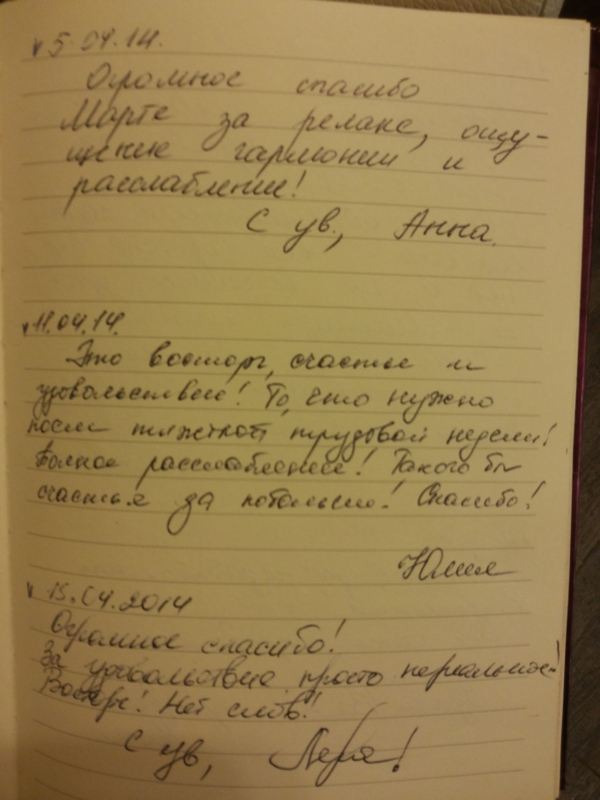 5.04.14.
Огромное спасибо
Марте за релакс, ощу-
щение гармонии и
расслабление!
С ув., Анна.
11.04.14.
Это восторг, счастье и
удовольствие! То, что нужно
после тяжёлой трудовой недели!
Полное расслабление! Такого бы
счастья да побольше! Спасибо!
Юлия
15.04.2014
Огромное спасибо!
За удовольствие просто нереальное!
Восторг! Нет слов!
С ув, Лера!